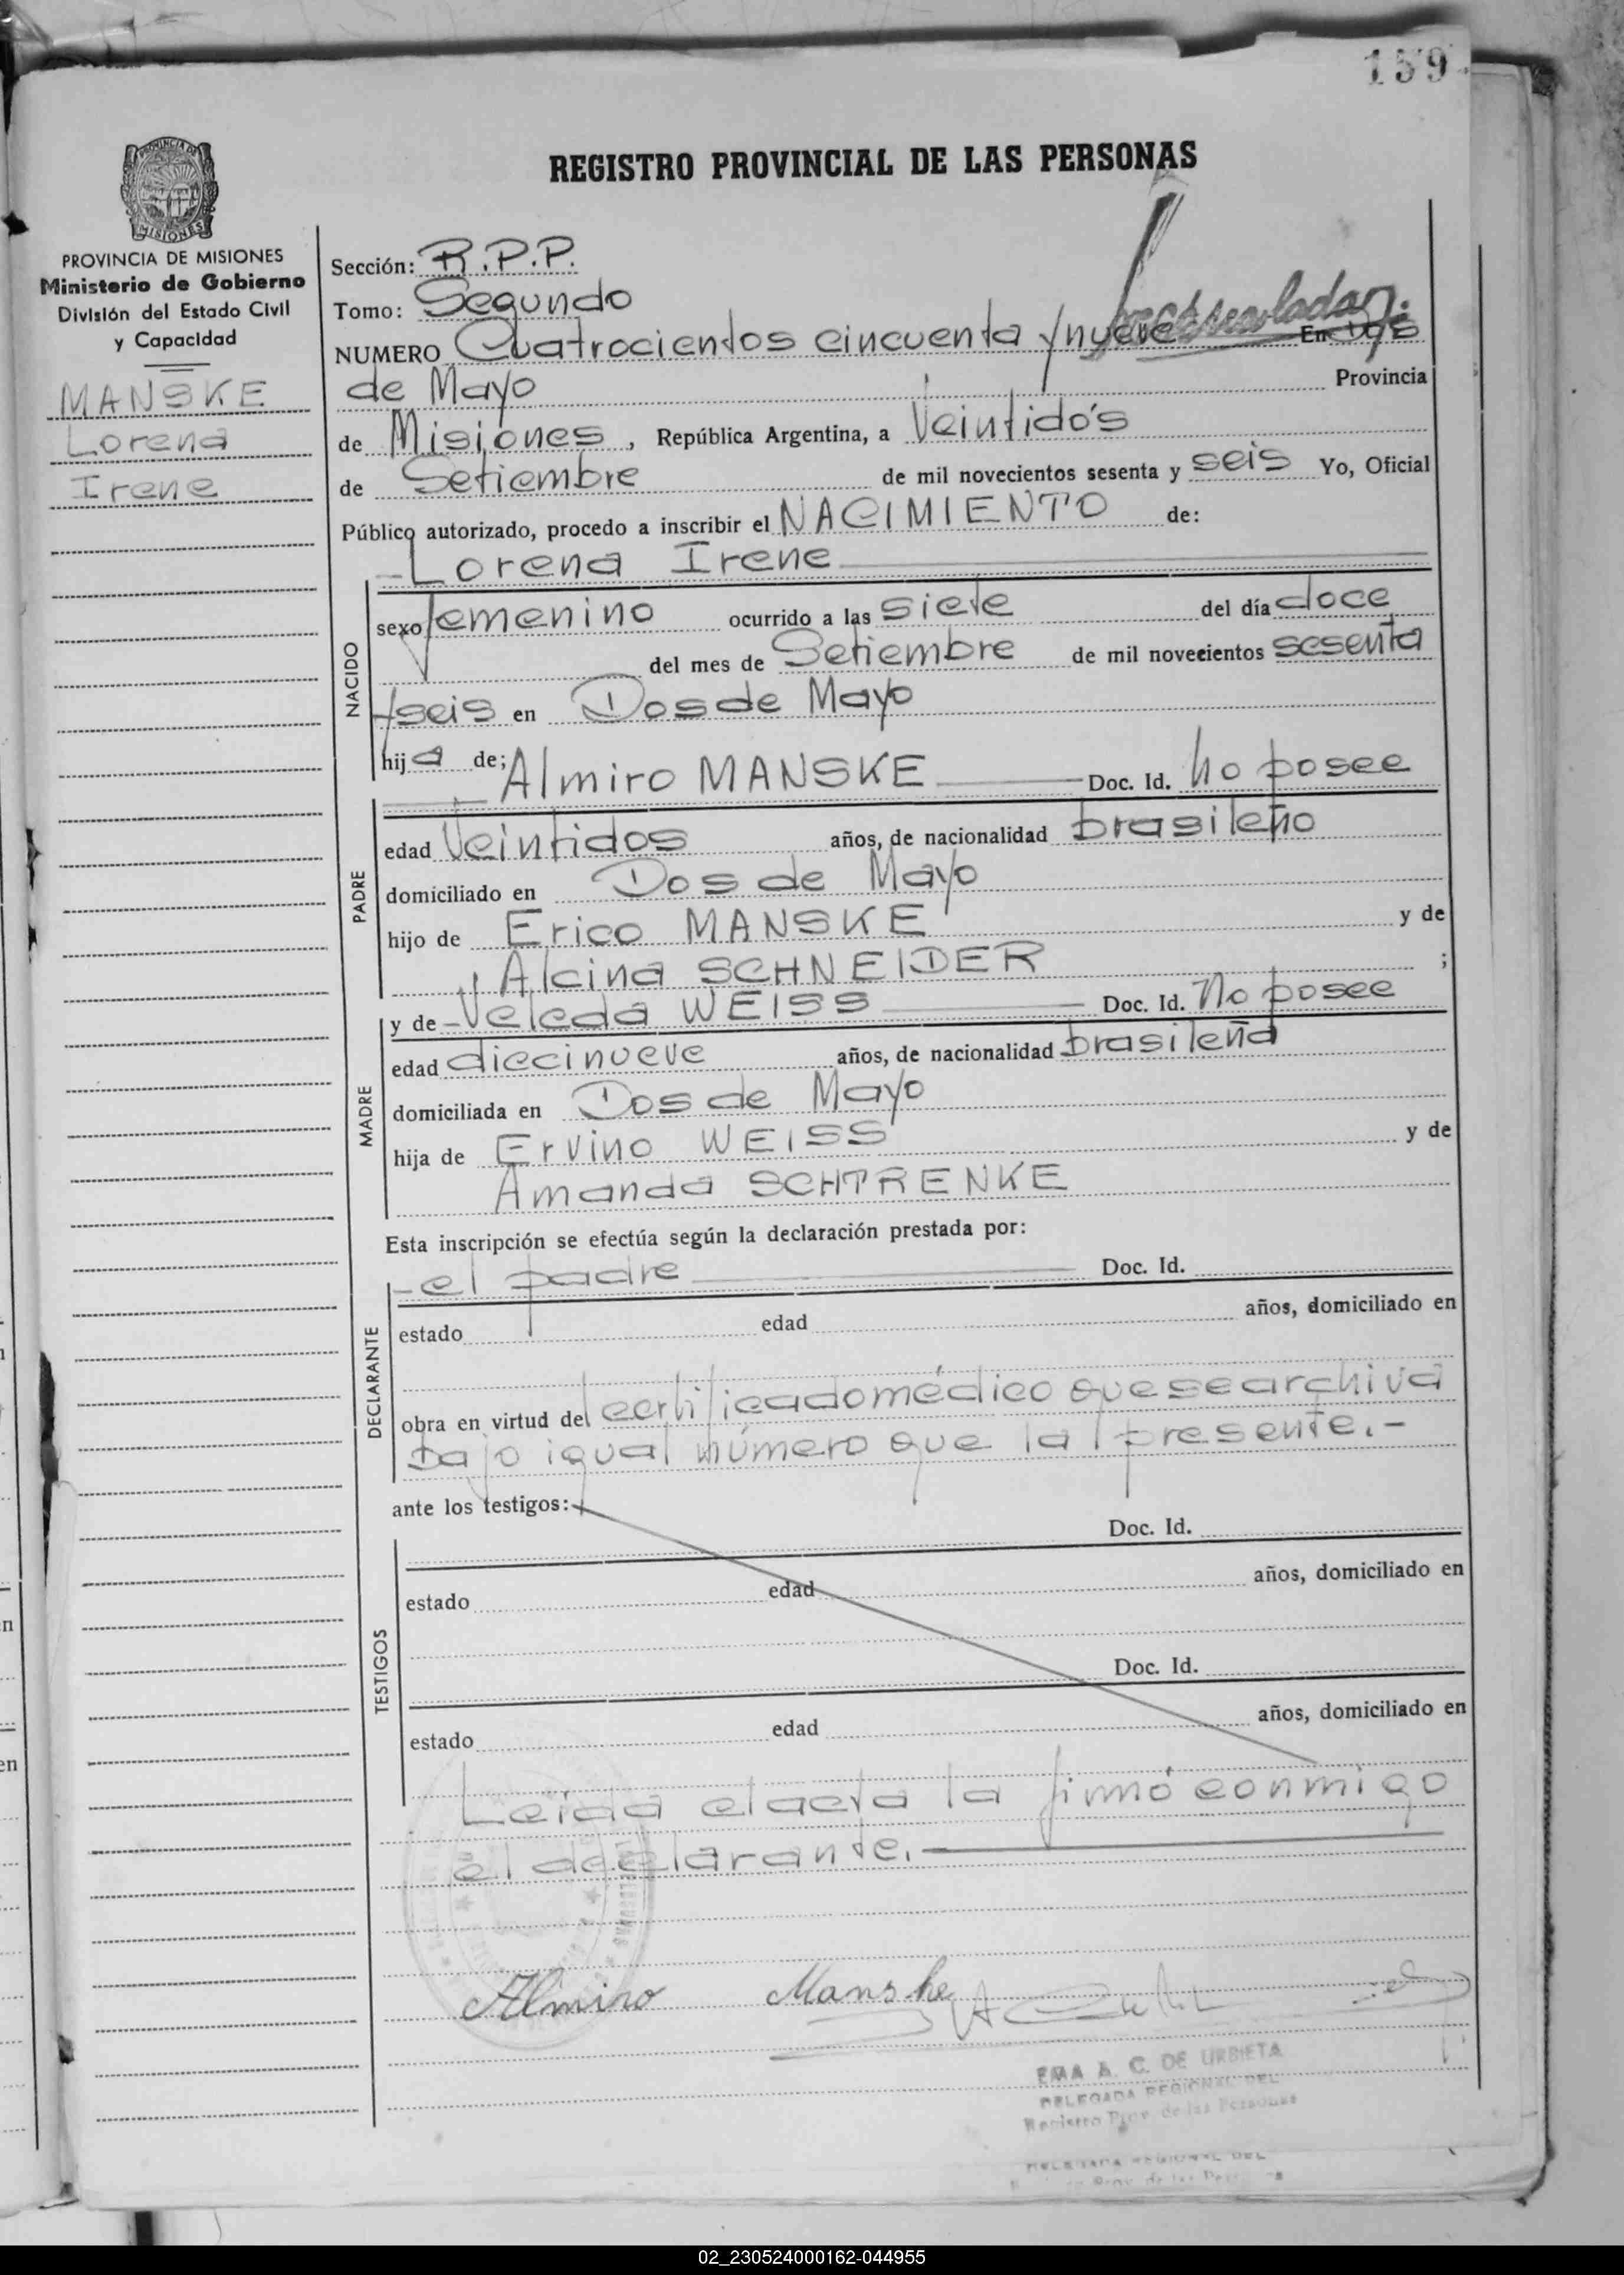 159
REGISTRO PROVINCIAL DE LAS PERSONAS
PROVINCIA DE
MISIONES
PROVINCIA DE MISIONES
Ministerio de Gobierno
División del Estado Civil
y Capacidad
MANSKE
Lorena
Irene
Sección: R.P.P.
Tomo: Segundo
NUMERO Cuatrocientos cincuenta y nueve En Dos
de Mayo Provincia
de Misiones, República Argentina, a Veintidós
de Setiembre de mil novecientos sesenta y seis Yo, Oficial
Público autorizado, procedo a inscribir el NACIMIENTO de:
Lorena Irene
NACIDO
sexo femenino ocurrido a las siete del día doce
del mes de Setiembre de mil novecientos sesenta
y seis en Dos de Mayo
hija de; Almiro MANSKE Doc. Id. No posee
PADRE
edad Veintidos años, de nacionalidad brasileño
domiciliado en Dos de Mayo
hijo de Erico MANSKE y de
Alcina SCHNEIDER ;
y de Veleda WEISS Doc. Id. No posee
MADRE
edad diecinueve años, de nacionalidad brasileña
domiciliada en Dos de Mayo
hija de Ervino WEISS y de
Amanda SCHTRENKE
Esta inscripción se efectúa según la declaración prestada por:
el padre Doc. Id.
DECLARANTE
estado edad años, domiciliado en
obra en virtud del certificado médico que se archiva
bajo igual número que la presente.-
ante los testigos:
Doc. Id.
TESTIGOS
estado edad años, domiciliado en
Doc. Id.
estado edad años, domiciliado en
Leída el acta la firmó conmigo
el declarante.
Almiro Manske
EMA A. C. DE URBIETA
DELEGADA REGIONAL DEL
Registro Prov. de las Personas
DELEGADA REGIONAL DEL
02_230524000162-044955